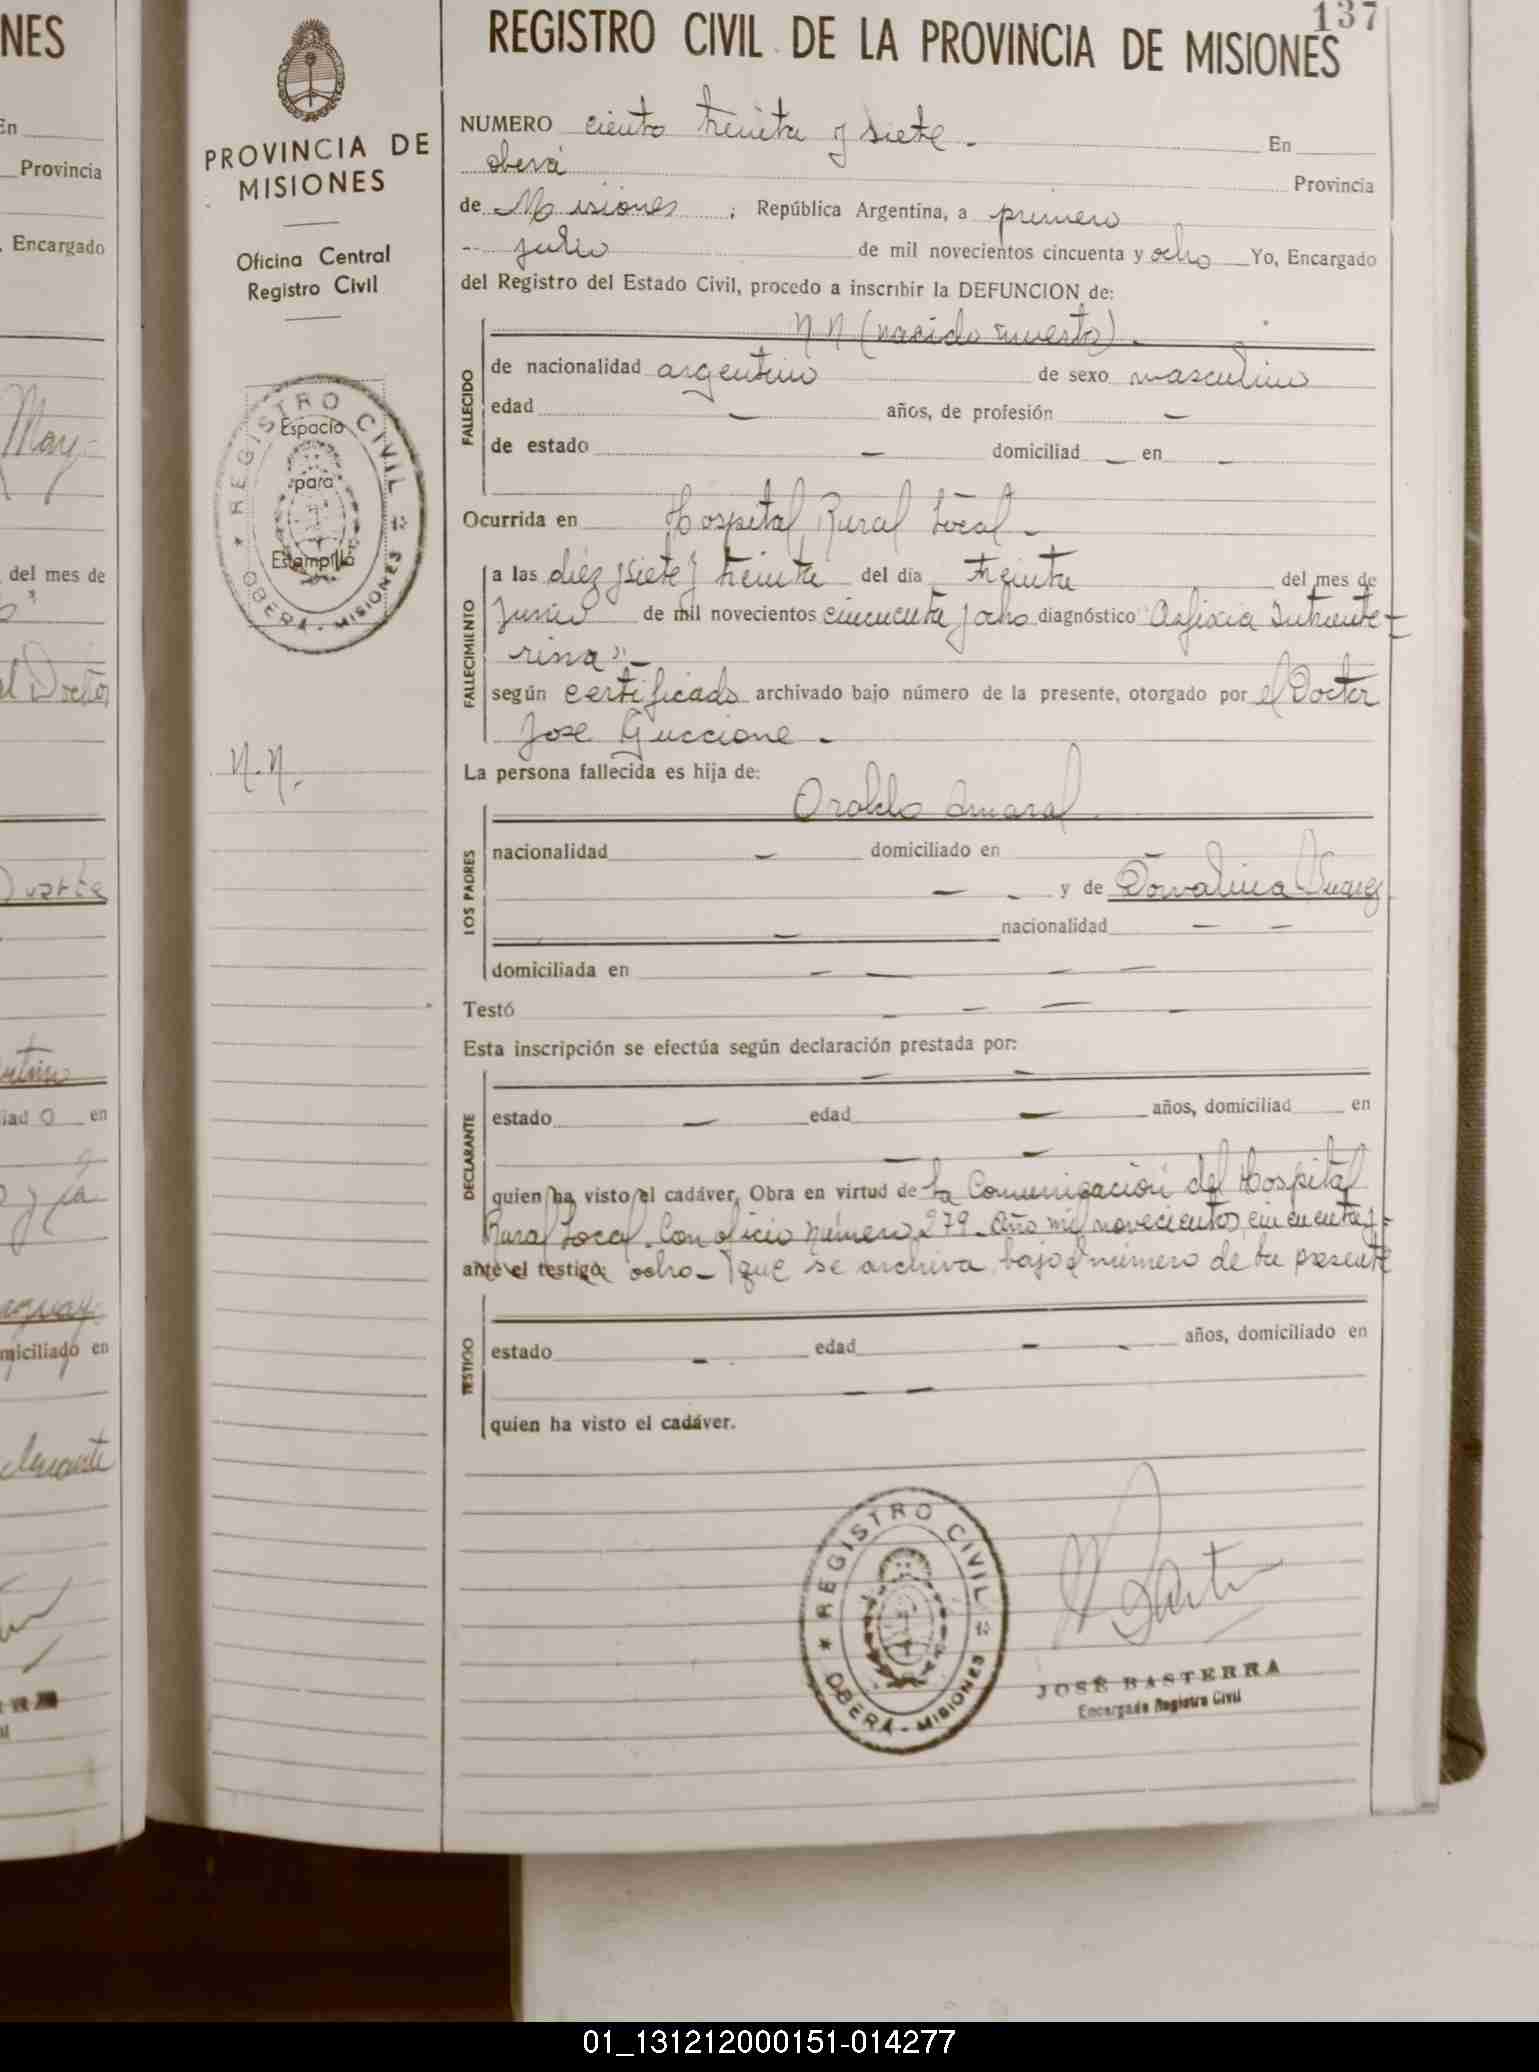 NES
En
Provincia
Encargado
May
del mes de
al Doctor
Duarte
iad o en
y la
miciliado en
137
REGISTRO CIVIL DE LA PROVINCIA DE MISIONES
PROVINCIA DE
MISIONES
Oficina Central
Registro Civil
REGISTRO CIVIL
Espacio
para
Estampilla
OBERÁ - MISIONES
N.N.
NUMERO ciento treinta y siete - En
oberá Provincia
de Misiones ; República Argentina, a primero
-- julio de mil novecientos cincuenta y ocho Yo, Encargado
del Registro del Estado Civil, procedo a inscribir la DEFUNCION de:
FALLECIDO
NN (nacido muerto) -
de nacionalidad argentino de sexo masculino
edad — años, de profesión —
de estado — domiciliad — en -
Ocurrida en Hospital Rural Local -
FALLECIMIENTO
a las diez y siete y treinta del día treinta del mes de
junio de mil novecientos cincuenta y ocho diagnóstico "Asfixia Intraute-
rina" -
según certificado archivado bajo número de la presente, otorgado por el Doctor
José Guccione -
La persona fallecida es hija de:
LOS PADRES
Oraldo Amaral
nacionalidad — domiciliado en —
— - y de Dorvalina Suarez
— nacionalidad — —
domiciliada en — — — —
Testó — — — —
Esta inscripción se efectúa según declaración prestada por:
DECLARANTE
— —
estado — edad — años, domiciliad en
— —
quien ha visto el cadáver, Obra en virtud de la Comunicación del Hospital
Rural Local. Con oficio número 279 - Año mil novecientos cincuenta y
ante el testigo ocho - que se archiva bajo el número de la presente
TESTIGO
estado — edad — - años, domiciliado en
— —
quien ha visto el cadáver.
REGISTRO CIVIL
OBERÁ - MISIONES
JOSÉ BASTERRA
Encargado Registro Civil
01_131212000151-014277